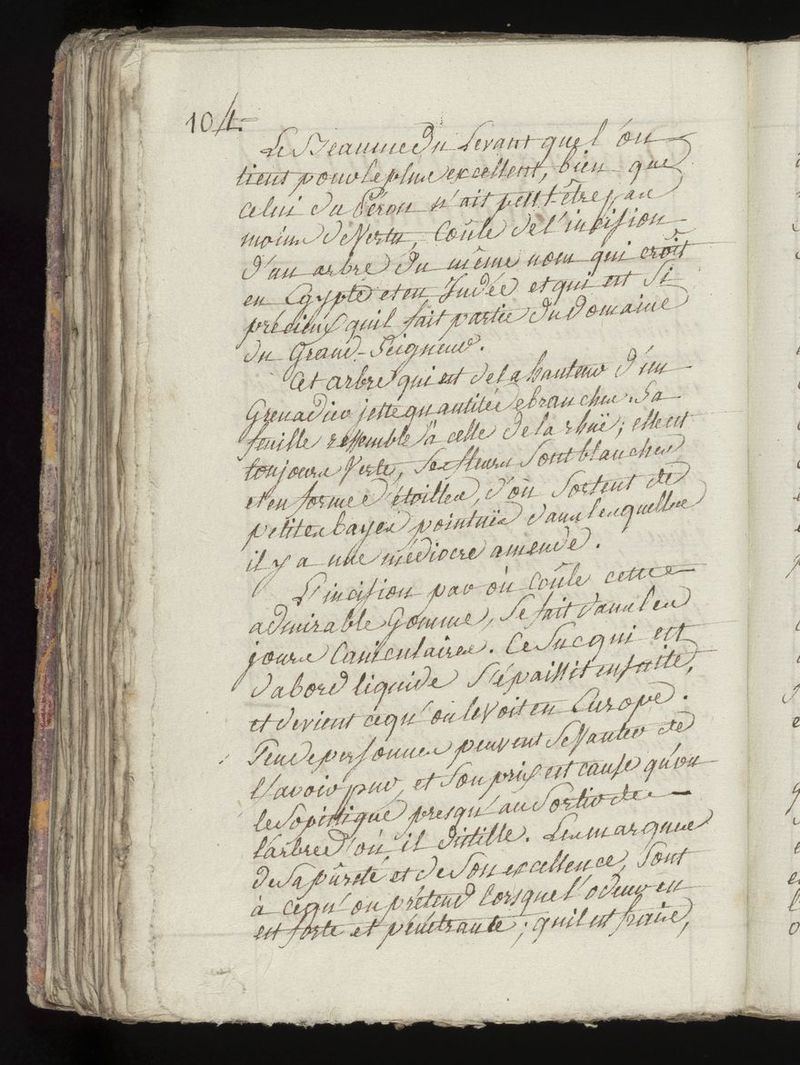 104.
Le Beaume du Levant quel'on
tient pour le plus excellent, bien que
celui du Pérou n'ait peut-être pas
moins de Vertu, coûle de l'incision
d'un arbre du même nom qui croît
en Egypte et en Judée et qui est si
précieux quil fait partie du Domaine
du Grand-Seigneur.
Cet arbre qui est de la hauteur d'un
Grenadier jette quantitée de branches. Sa
feuille resemble à celle de la rhuë; elle est
toujours Verte, Ses fleurs Sont blanches
et en forme d'étoilles, d'où Sortent de
petites bayes pointuës dans lesquelles
il y a une médiocre amende.
L'incision par où coûle cette
admirable Gomme, Se fait dans les
jours Caniculaires. Ce Suc qui est
d'abord liquide S'épaissit ensuite,
et devient ce qu'on le Voit en Europe.
Peu de personnes peuvent Se Vanter de
l'avoir pur, et Son prix est cause qu'on
le Sophistique presqu'au Sortir de
l'arbre d'où il distille. Les marques
de Sa pûreté et de Son excellence, Sont
à ce qu'on prétend lorsque l'odeur en
est forte et pénétrante; quil est frais,